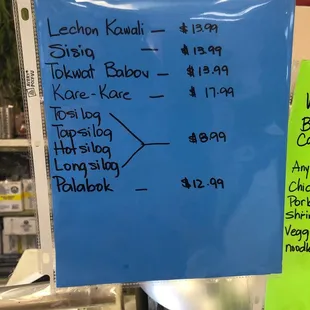 Lechon Kawali — $13.99
Sisig — $13.99
Tokwat Baboy — $13.99
Kare-Kare — $17.99
Tosilog
Tapsilog
Hotsilog
Longsilog
$8.99
Palabok — $12.99
Any
Chic
Pork
Shri
Vegg
nood